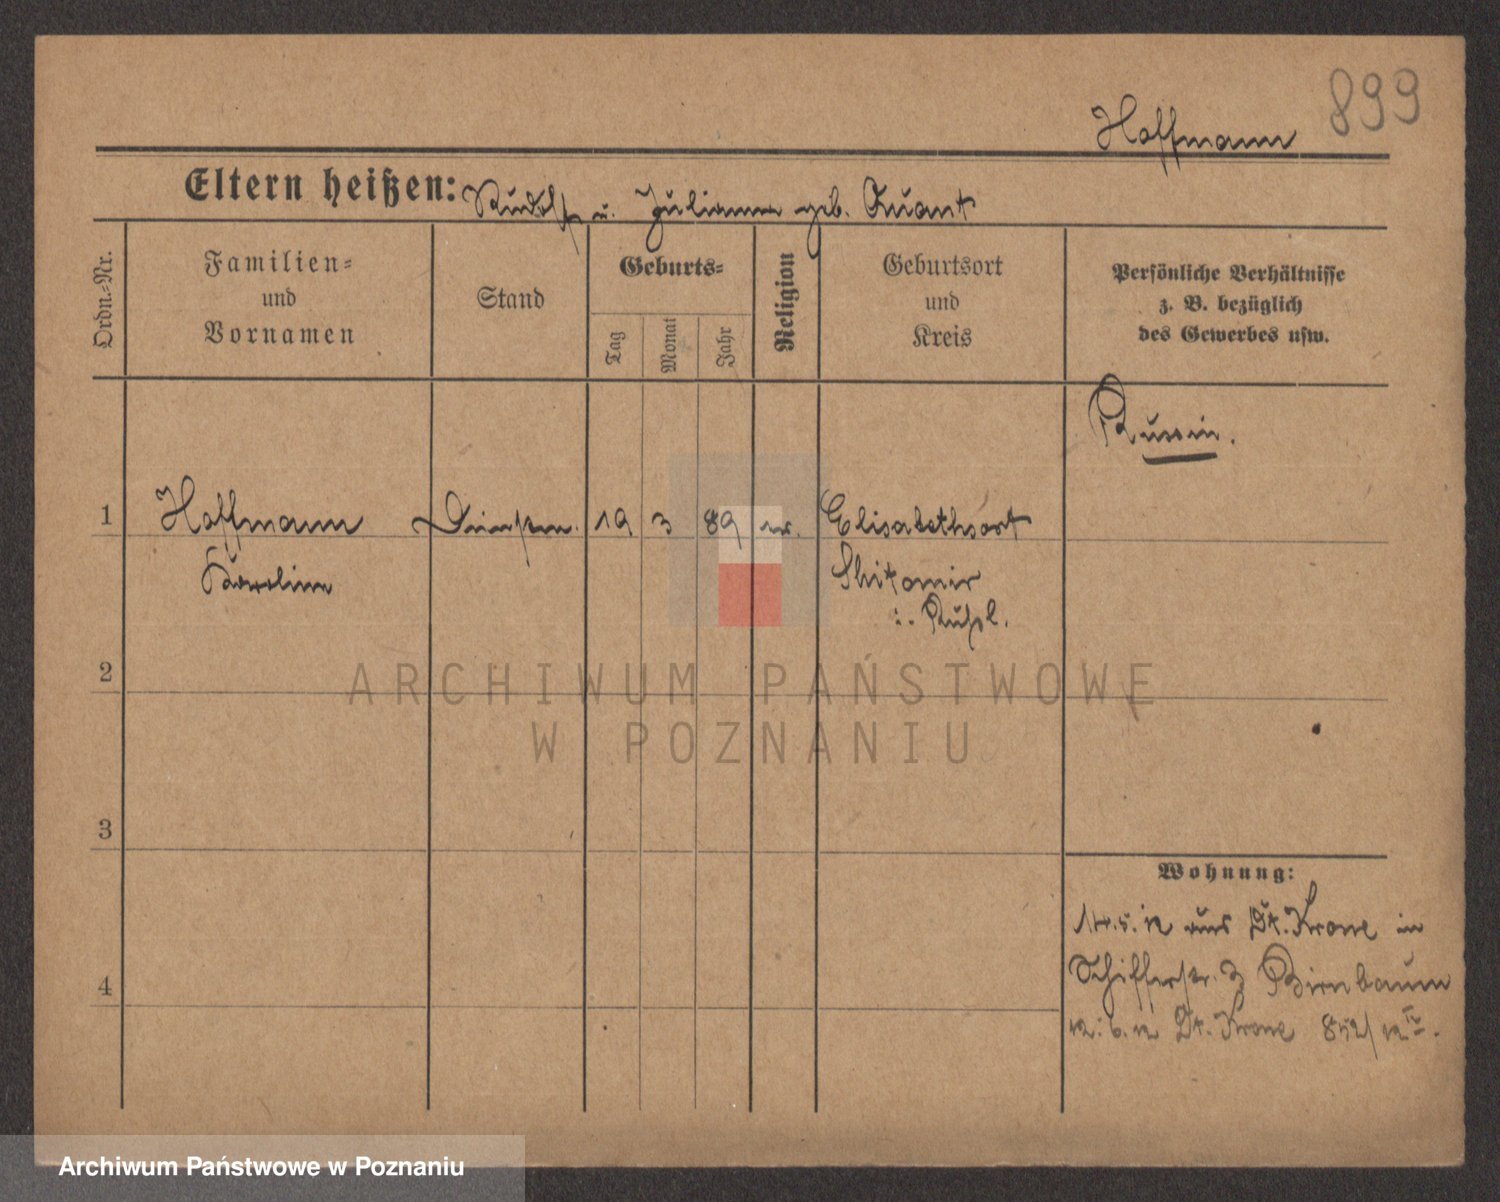 899
Hoffmann
Eltern heißen: Rudolf u. Julianna geb. Quant
Ordn.-Nr.
Familien-
und
Vornamen
Stand
Geburts-
Tag
Monat
Jahr
Religion
Geburtsort
und
Kreis
Persönliche Verhältnisse
z. B. bezüglich
des Gewerbes usw.
Russin.
1 Hoffmann 19 3 89 ev. Elisabethsort
Karoline Shitomir
i. Rußl.
2
ARCHIWUM PAŃSTWOWE
W POZNANIU
3
Wohnung:
14.5.12 aus Dt. Krone in
Schifferstr. 3 Birnbaum
4
12.6.12 Dt. Krone 852/12
Archiwum Państwowe w Poznaniu